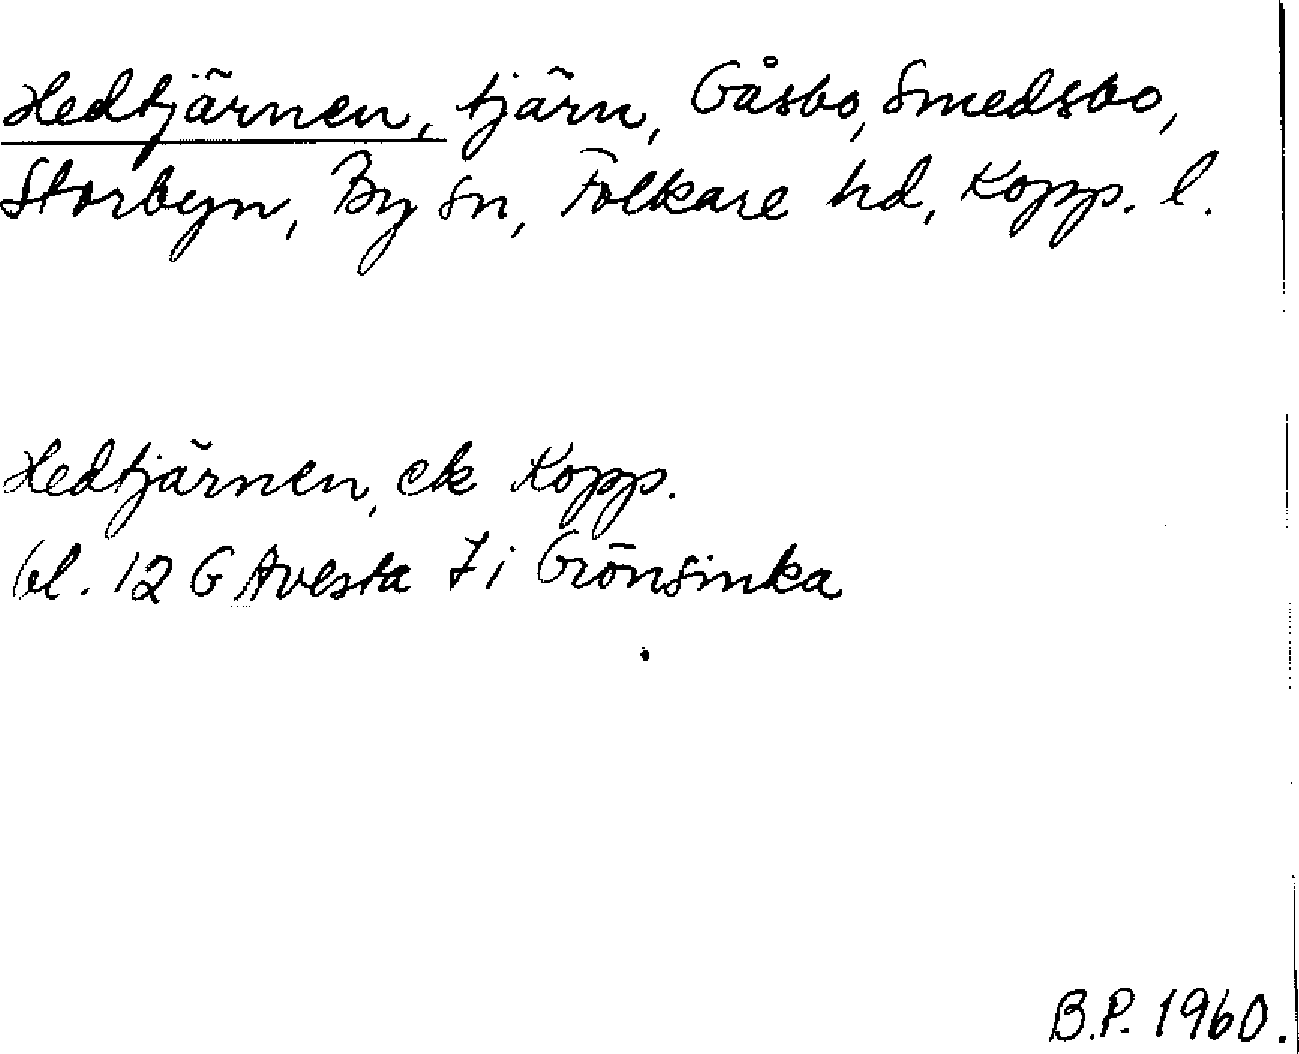 Hedtjärnen, tjärn, Gåsbo, Smedsbo,
Storbyn, By sn, Folkare hd, Kopp. l.
Hedtjärnen, ek Kopp.
bl. 12 G Avesta 7 i Grönsinka
B.P. 1960.